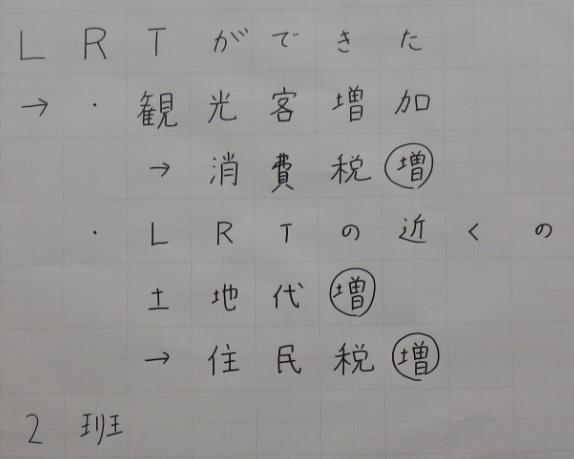 LRTができた
→・観光客増加
→消費税増
・LRTの近くの
土地代増
→住民税増
2班